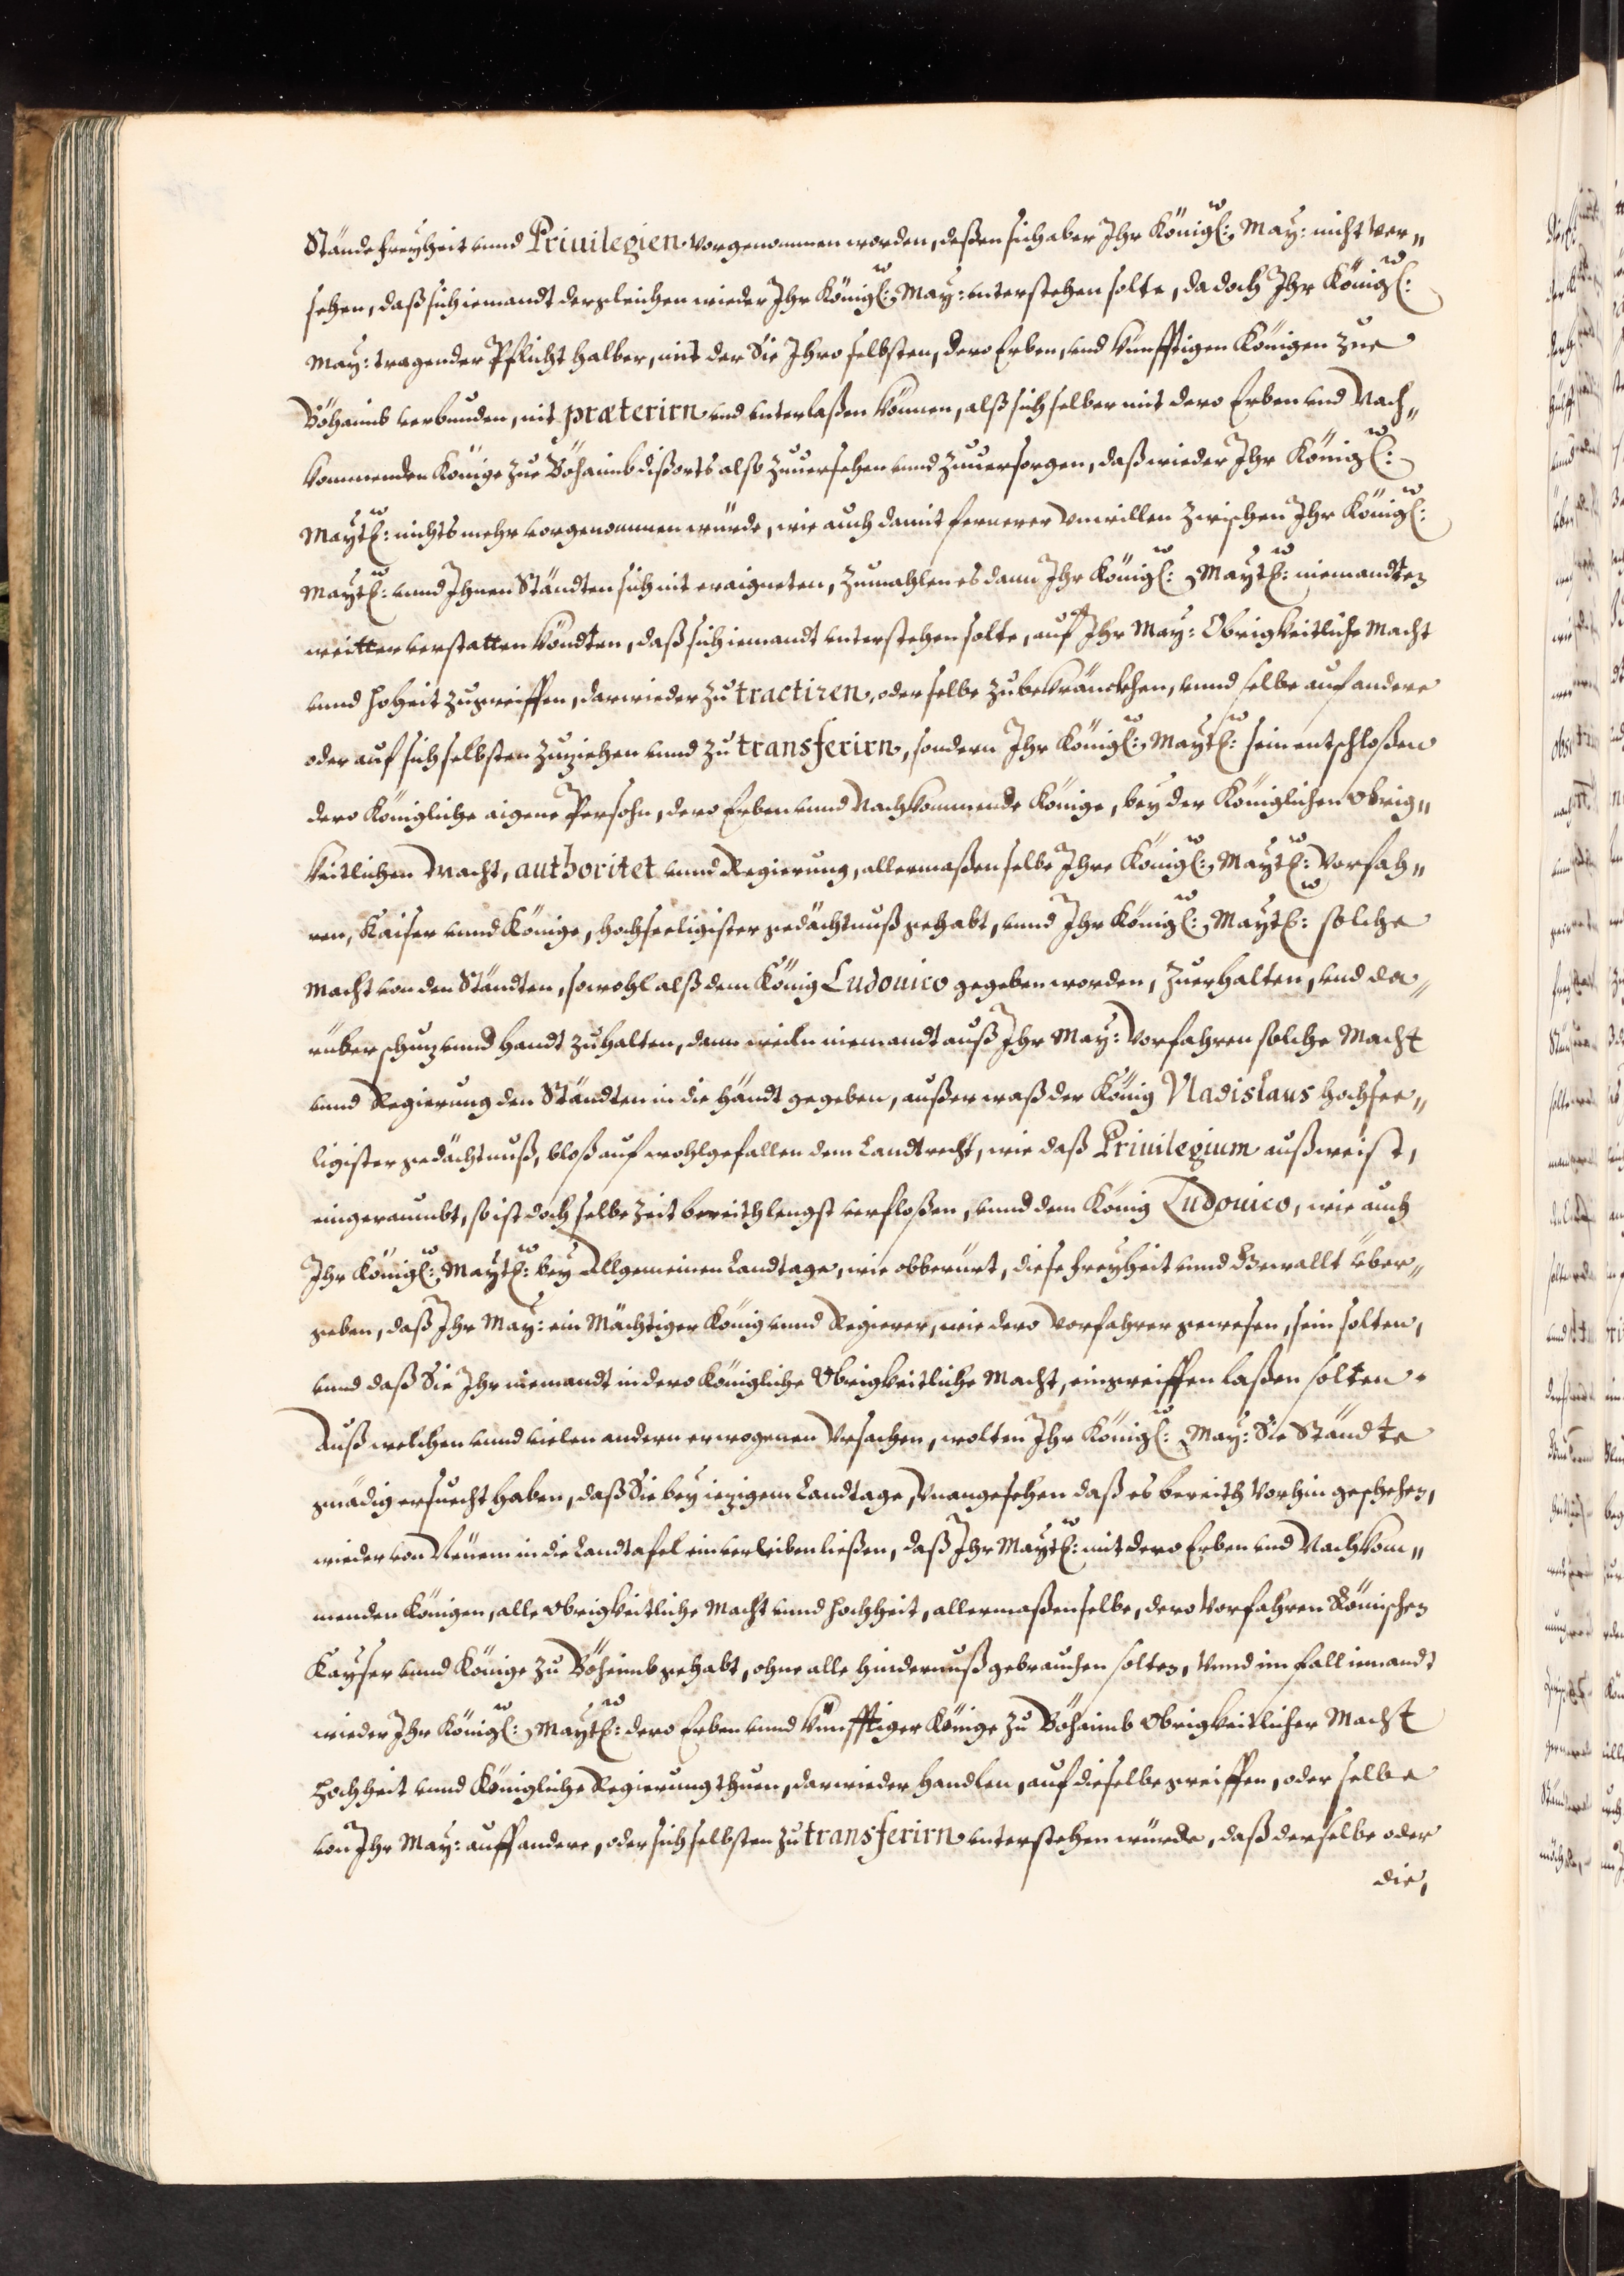 Stände freyheit vnnd Priuilegien vorgenommen worden, deßen sich aber Ihr Königl: May: nicht ver„
sehen, daß sich iemandt dergleichen wieder Ihr Königl: May: vnterstehen solte, da doch Ihr Königl:
May: tragender Pflicht halber, mit der Sie Ihro selbsten, dero Erben, vnd künfftigen Königen zue
Böhaimb verbunden, nit præterirn vnd vnterlaßen können, alß sich selber mit dero Erben vnd Nach„
kommenden Könige zue Böhaimb dißorts also zuuersehen vnnd zuuersorgen, daß wieder Ihr Königl:
Maytl: nichts mehr vorgenommen würde, wie auch damit fernerer vnwillen zwischen Ihr Königl:
Maytl: vnnd Ihnen Ständten sich nit eraigneten, zumahlen es dann Ihr Königl: Maytl: niemandten
weitter verstatten köndten, daß sich iemandt vnterstehen solte, auf Ihr May: Obrigkeitliche Macht
vnnd hoheit zugreiffen, darwieder zu tractiren, oder selbe zubekränckhen, vnnd selbe auf andere
oder auf sich selbsten zuziehen vnnd zu transferirn, sondern Ihr Königl: Maytl: sein entschloßen
dero Königliche aigene Persohn, dero Erben vnnd Nachkommende Könige, bey der Königlichen obrig„
keitlichen Macht, authoritet vnnd Regierung, allermaßen selbe Ihre Königl: Maytl: Vorfah„
ren, Kaiser vnnd Könige, hochseeligister gedächtnuß gehabt, vnnd Ihr Königl: Maytl: solche
Macht von den Ständten, sowohl alß dem König Ludouico gegeben worden, zuerhalten, vnd da„
rüber schuz vnnd handt zuhalten, dann weiln niemandt auß Ihr May: Vorfahren solche Macht
vnnd Regierung den Ständten in die händt gegeben, außer waß der König Vladislaus hochsee„
ligister gedächtnuß, bloß auf wohlgefallen dem Landtrecht, wie daß Priuilegium außweist,
eingeraumbt, so ist doch selbe Zeit bereith lengst verfloßen, vnnd dem König Ludouico, wie auch
Ihr Königl: Maytl: bey Allgemeinen Landtage, wie obberürt, diese freyheit vnnd Gewallt über„
geben, daß Ihr May: ein Mächtiger König vnnd Regierer, wie dero Vorfahrer gewesen, sein solten,
vnnd daß Sie Ihr niemandt in dero Königliche Obrigkeitliche Macht, eingreiffen laßen solten.
Auß welchen vnnd vielen andern erwogenen Vrsachen, wolten Ihr Königl: May: Sie Ständte
gnädig ersuecht haben, daß Sie bey iezigem Landtage, Vnangesehen daß es bereith vorhin geschehen,
wieder von Neuem in die Landtafel einverleiben ließen, daß Ihr Maytl: mit dero Erben vnd Nachkom„
menden Königen, alle obrigkeitliche Macht vnnd hochheit, allermaßen selbe, dero Vorfahren Römischen
Kayser vnnd Könige zu Böheimb gehabt, ohne alle hindernuß gebrauchen solten, Vnnd im fall iemandt
wieder Ihr Königl: Maytl: dero Erben vnnd künfftiger Könige zu Böhaimb Obrigkeitlicher Macht
hochheit vnnd Königliche Regierung thuen, darwieder handlen, auf dieselbe greiffen, oder selbe
von Ihr May: auff andere, oder sich selbsten zu transferirn vnterstehen würde, daß derselbe oder
die,